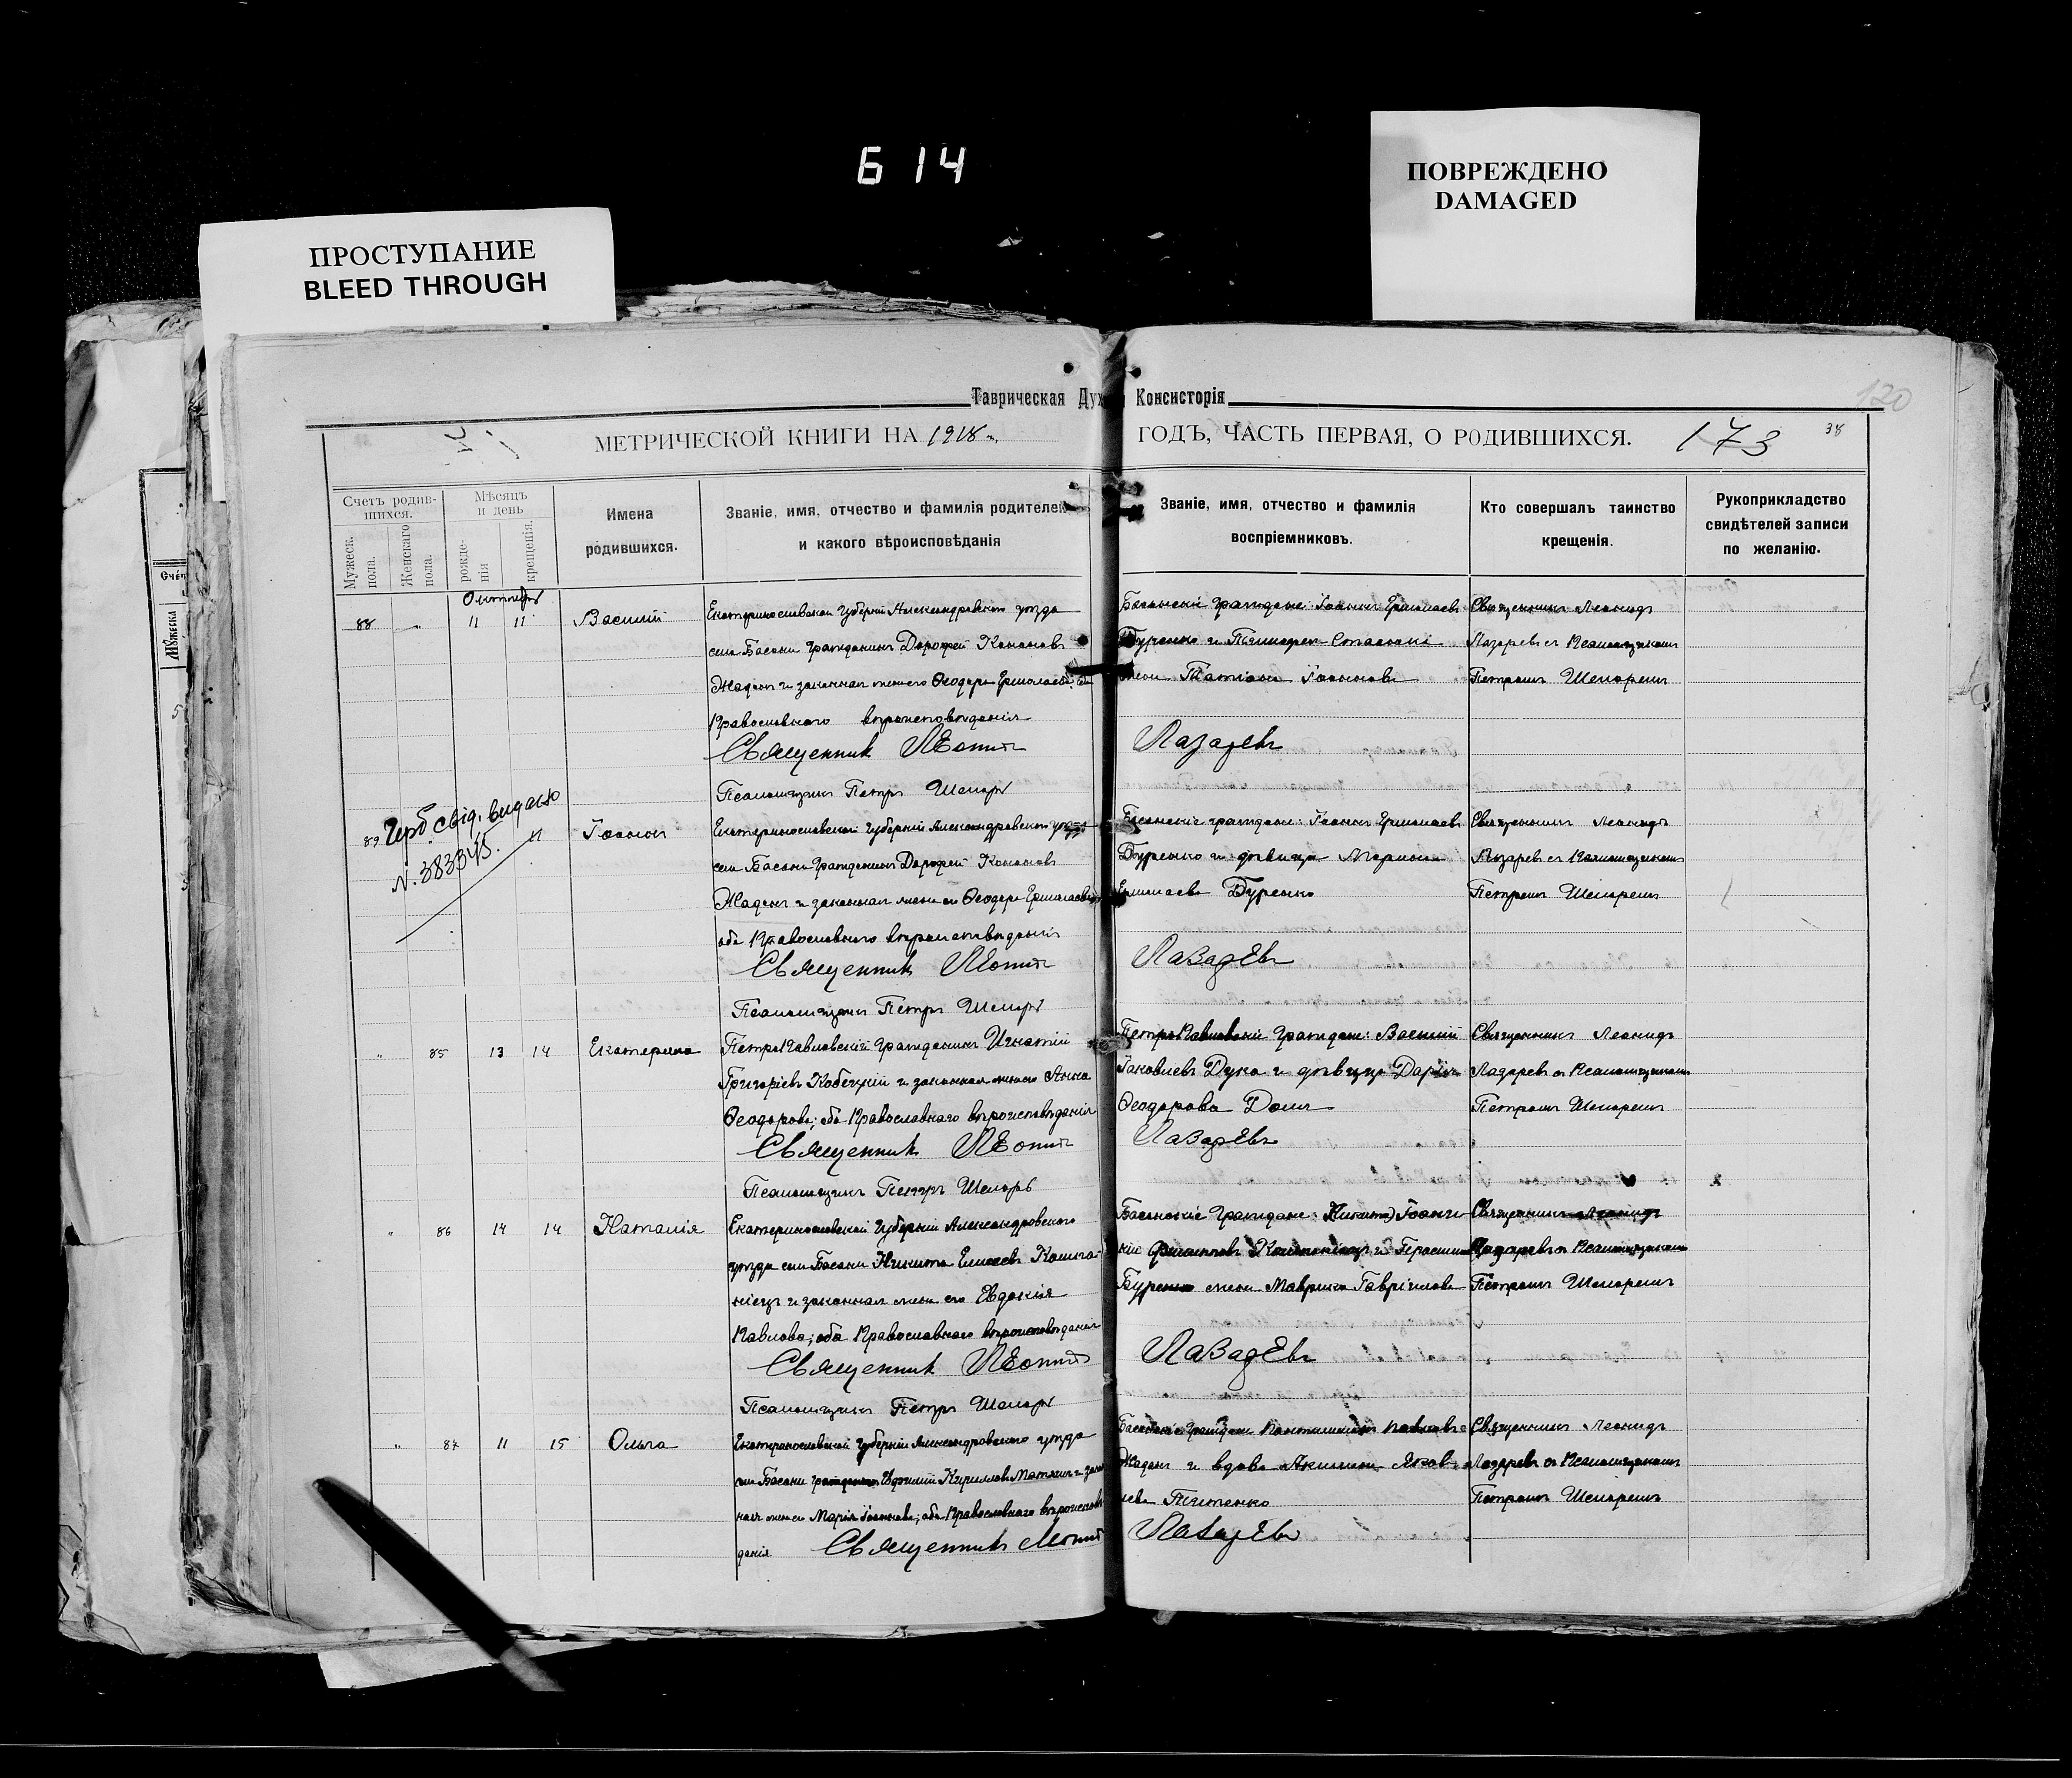 614
ПОВРЕЖДЕНО
DAMAGED
ПРОСТУПАНИЕ
BLEED THROUGH
Таврическая Дух Консисторія
120
МЕТРИЧЕСКОЙ КНИГИ НА 1918 г. ГОДЪ, ЧАСТЬ ПЕРВАЯ, О РОДИВШИХСЯ. 173 38
Счетъ родив-
шихся.
Мужеск. пола.
Женскаго пола.
Мѣсяцъ
и день
рожде-
нія
крещенія.
Имена
родившихся.
Званіе, имя, отчество и фамилія родителей
и какого вѣроисповѣданія
Званіе, имя, отчество и фамилія
воспріемниковъ.
Кто совершалъ таинство
крещенія.
Рукоприкладство
свидѣтелей записи
по желанію.
Октября
88 " 11 11 Василій Екатеринославской губерніи Александровскаго уѣзда
села Басани гражданинъ Дорофей Кононовъ
Жаданъ и законная жена его Ѳеодора Ермолаева
Православнаго вѣроисповѣданія
Священникъ Леонидъ Лазаревъ
Псаломщикъ Петръ Шепарь
Басанскіе граждане: Іоаннъ Ермолаевъ
Буренко и
жена Татіана Іоаннова
Священникъ Леонидъ
Лазаревъ съ Псаломщикомъ
Петромъ Шепаремъ
89 Герб свід. видано
N. 383345.
11 Іоаннъ Екатеринославской губерніи Александровскаго уѣзда
села Басани гражданинъ Дорофей Кононовъ
Жаданъ и законная жена его Ѳеодора Ермолаева
оба Православнаго вѣроисповѣданія
Священникъ Леонидъ Лазаревъ
Псаломщикъ Петръ Шепарь
Басанскіе граждане: Іоаннъ Ермолаевъ
Буренко и дѣвица Марина
Ермолаева Буренко
Священникъ Леонидъ
Лазаревъ съ Псаломщикомъ
Петромъ Шепаремъ
" 85 13 14 Екатерина ПетроПавловскій гражданинъ Игнатій
Григоріевъ Кобецкій и законная жена его Анна
Ѳеодорова; оба Православнаго вѣроисповѣданія
Священникъ Леонидъ Лазаревъ
Псаломщикъ Петръ Шепарь
ПетроПавловскіе граждане: Василій
Іаковлевъ Дука и дѣвица Дарія
Ѳеодорова
Священникъ Леонидъ
Лазаревъ съ Псаломщикомъ
Петромъ Шепаремъ
" 86 14 14 Наталія Екатеринославской губерніи Александровскаго
уѣзда села Басани Никита Елисеевъ
и законная жена его Евдокія
Павлова; оба Православнаго вѣроисповѣданія
Священникъ Леонидъ Лазаревъ
Псаломщикъ Петръ Шепарь
Басанскіе граждане:
Буренко жена Маврика Гавріилова
Священникъ Леонидъ
Лазаревъ съ Псаломщикомъ
Петромъ Шепаремъ
" 87 11 15 Ольга Екатеринославской губерніи Александровскаго уѣзда
села Басани гражданинъ Кирилловъ
жена Марія Іоаннова; оба Православнаго вѣроисповѣ
данія Священникъ Леонидъ Лазаревъ
Жаданъ и вдова Яков
лева
Священникъ Леонидъ
Лазаревъ съ Псаломщикомъ
Петромъ Шепаремъ